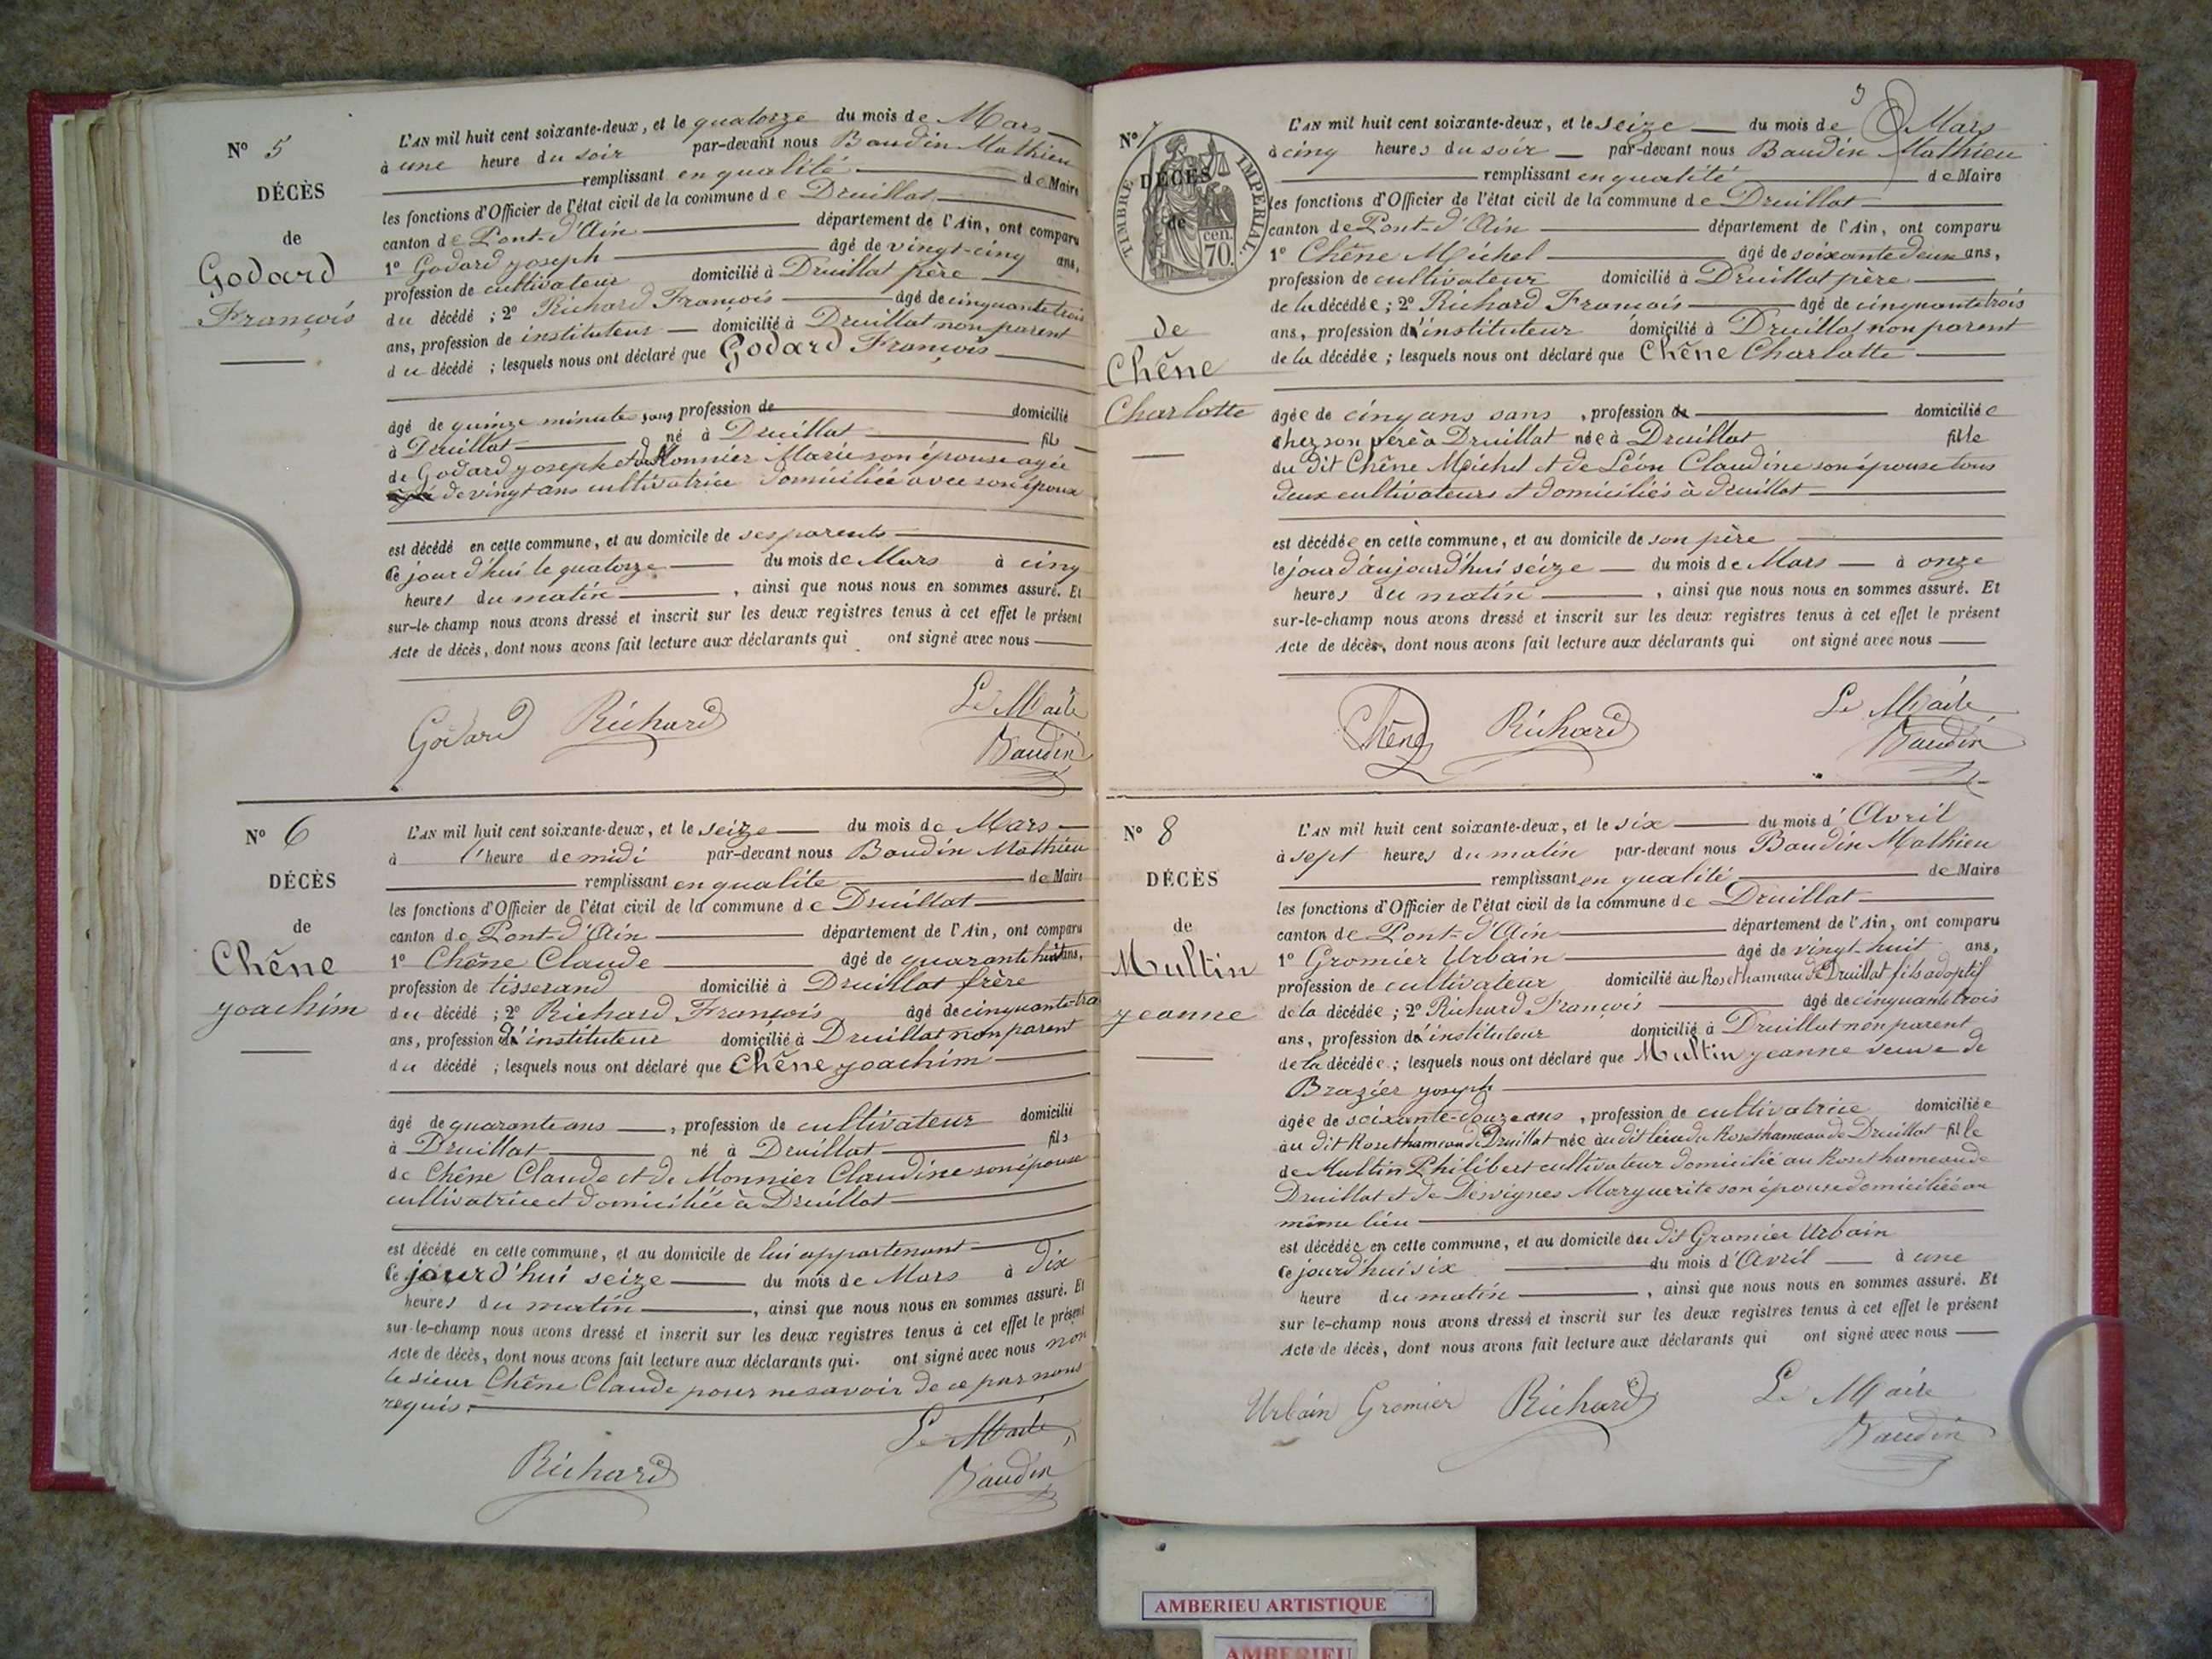 N° 5
DÉCÈS
de
Godard
François
L'AN mil huit cent soixante-deux, et le quatorze du mois de Mars
à une heure du soir par-devant nous Baudin Mathieu
remplissant en qualité de Maire
les fonctions d'Officier de l'état civil de la commune de Druillat
canton de Pont-d'Ain département de l'Ain, ont comparu
1° Godard yoseph âgé de vingt-cinq ans,
profession de cultivateur domicilié à Druillat père
du décédé ; 2° Richard François âgé de cinquante trois
ans, profession de instituteur domicilié à Druillat non parent
du décédé ; lesquels nous ont déclaré que Godard François
âgé de quinze minutes sans profession de domicilié
à Druillat né à Druillat fils
de Godard yoseph et de Monnier Marie son épouse agée
de vingt ans cultivatrice domiciliée avec son époux
est décédé en cette commune, et au domicile de ses parents
ce jourd'hui le quatorze du mois de Mars à cinq
heures du matin, ainsi que nous nous en sommes assuré. Et
sur-le-champ nous avons dressé et inscrit sur les deux registres tenus à cet effet le présent
Acte de décès, dont nous avons fait lecture aux déclarants qui ont signé avec nous
Godard Richard Le Maire
Baudin
N° 6
DÉCÈS
de
Chêne
yoachim
L'AN mil huit cent soixante-deux, et le seize du mois de Mars
à l'heure de midi par-devant nous Baudin Mathieu
remplissant en qualité de Maire
les fonctions d'Officier de l'état civil de la commune de Druillat
canton de Pont-d'Ain département de l'Ain, ont comparu
1° Chêne Claude âgé de quarante huit ans,
profession de tisserand domicilié à Druillat frère
du décédé ; 2° Richard François âgé de cinquante-tro
ans, profession d'instituteur domicilié à Druillat non parent
du décédé ; lesquels nous ont déclaré que Chêne yoachim
âgé de quarante ans, profession de cultivateur domicilié
à Druillat né à Druillat fils
de Chêne Claude et de Monnier Claudine son épouse
cultivatrice et domiciliée à Druillat
est décédé en cette commune, et au domicile de lui appartenant
ce jourd'hui seize du mois de Mars à dix
heures du matin, ainsi que nous nous en sommes assuré. Et
sur-le-champ nous avons dressé et inscrit sur les deux registres tenus à cet effet le présent
Acte de décès, dont nous avons fait lecture aux déclarants qui. ont signé avec nous non
le sieur Chêne Claude pour ne savoir de ce par nous
requis.
Richard Le Maire
Baudin
3
N° 7
TIMBRE IMPÉRIAL
70 cen.
DÉCÈS
de
de
Chêne
Charlotte
L'AN mil huit cent soixante-deux, et le seize du mois de Mars
à cinq heures du soir par-devant nous Baudin Mathieu
remplissant en qualité de Maire
les fonctions d'Officier de l'état civil de la commune de Druillat
canton de Pont-d'Ain département de l'Ain, ont comparu
1° Chêne Michel âgé de soixante deux ans,
profession de cultivateur domicilié à Druillat père
de la décédée ; 2° Richard François âgé de cinquante trois
ans, profession d'instituteur domicilié à Druillat non parent
de la décédée ; lesquels nous ont déclaré que Chêne Charlotte
âgée de cinq ans sans, profession de domiciliée
chez son père à Druillat née à Druillat fille
du dit Chêne Michel et de Léon Claudine son épouse tous
deux cultivateurs et domiciliés à druillat
est décédée en cette commune, et au domicile de son père
le jour d'aujourd'hui seize du mois de Mars à onze
heures du matin, ainsi que nous nous en sommes assuré. Et
sur-le-champ nous avons dressé et inscrit sur les deux registres tenus à cet effet le présent
Acte de décès, dont nous avons fait lecture aux déclarants qui ont signé avec nous
Chêne Richard Le Maire
Baudin
N° 8
DÉCÈS
de
Multin
yeanne
L'AN mil huit cent soixante-deux, et le six du mois d'Avril
à sept heures du matin par-devant nous Baudin Mathieu
remplissant en qualité de Maire
les fonctions d'Officier de l'état civil de la commune de Druillat
canton de Pont-d'Ain département de l'Ain, ont comparu
1° Gromier Urbain âgé de vingt-huit ans,
profession de cultivateur domicilié au Roset hameau de Druillat fils adoptif
de la décédée ; 2° Richard François âgé de cinquante trois
ans, profession d'instituteur domicilié à Druillat non parent
de la décédée ; lesquels nous ont déclaré que Multin yeanne veuve de
Brazier yoseph
âgée de soixante-douze ans, profession de cultivatrice domiciliée
au dit Roset hameau de Druillat née au dit lieu du Roset hameau de Druillat fille
de Multin Philibert cultivateur domicilié au Roset hameau de
Druillat et de Desvignes Marguerite son épouse domiciliée au
même lieu
est décédée en cette commune, et au domicile du dit Gromier Urbain
ce jourd'hui six du mois d'Avril à une
heure du matin, ainsi que nous nous en sommes assuré. Et
sur le-champ nous avons dressé et inscrit sur les deux registres tenus à cet effet le présent
Acte de décès, dont nous avons fait lecture aux déclarants qui ont signé avec nous
Urbain Gromier Richard Le Maire
Baudin
AMBERIEU ARTISTIQUE
AMBERIEU